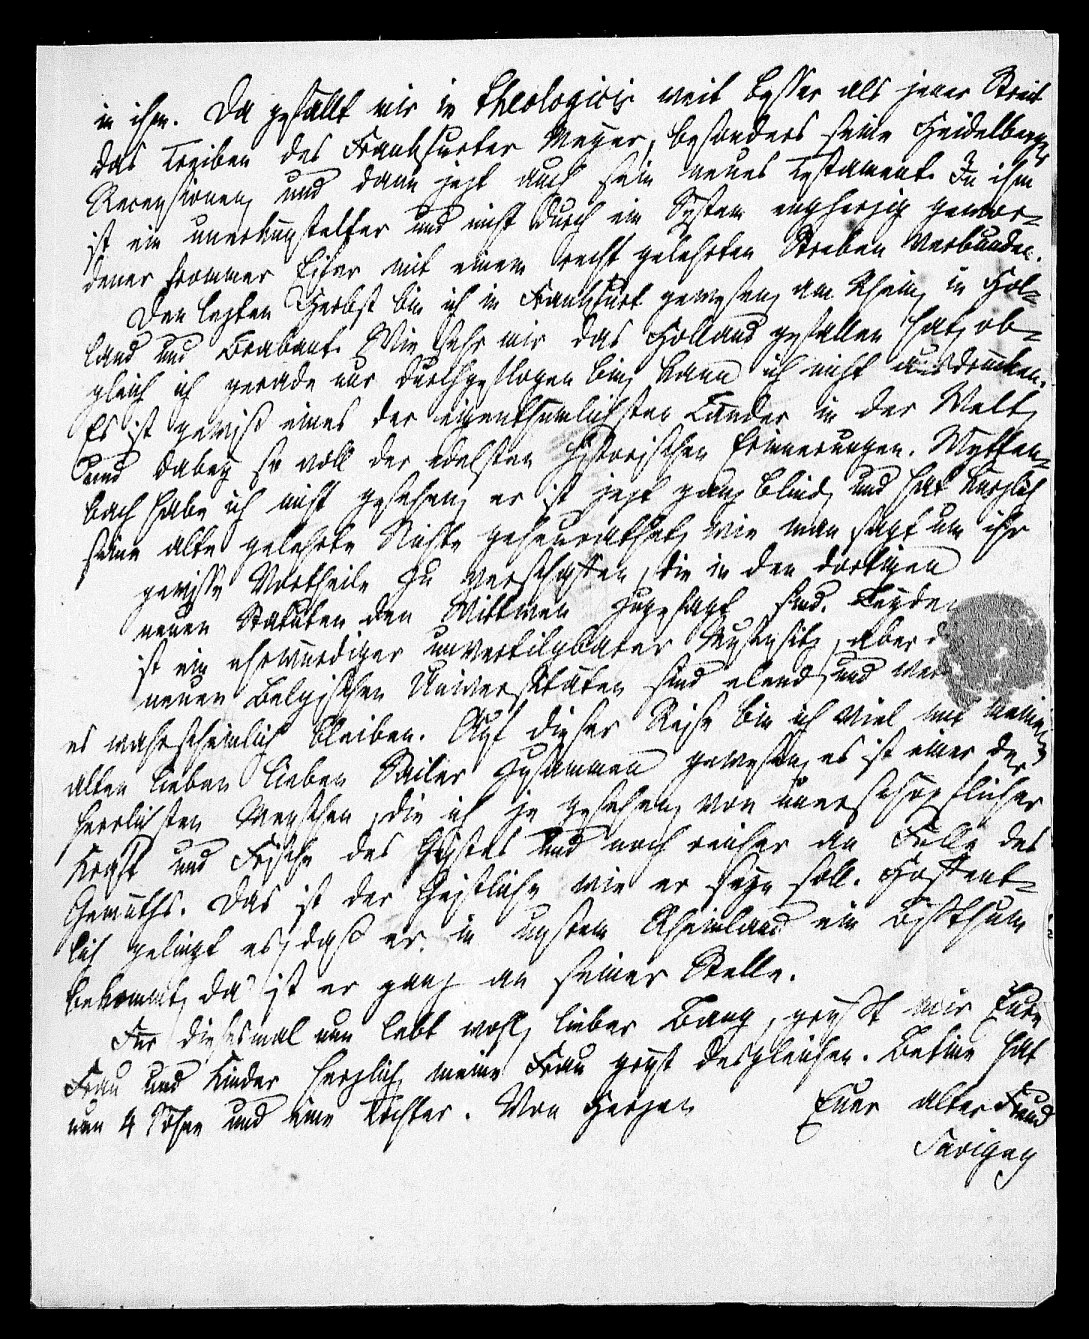 in ihm. Da gefällt mir in theologicis weit besser als jener Streit
das Treiben des Frankfurter Meyer, besonders seine Heidelberger
Recensionen, und dann jezt auch sein neues Testament. In ihm
ist ein unerkünstelter und nicht durch ein System engherzig gewor-
dener frommer Eifer mit einem recht gelehrten Streben verbunden.
Den lezten Herbst bin ich in Frankfurt gewesen, am Rhein, in Hol-
land und Brabant. Wie sehr mir das Holland gefallen hat, ob-
gleich ich gerade nur durchgeflogen bin, kann ich nicht ausdrucken.
Es ist gewiß eines der eigenthümlichsten Länder in der Welt,
und dabey so voll der edelsten historischen Erinnerungen. Wytten-
bach habe ich nicht gesehen, er ist jezt ganz blind, und hat kürzlich
seine alte gelehrte Nichte geheurathet, wie man sagt um ihr
gewisse Vortheile zu verschaffen, die in den dortigen
neuen Statuten den Wittwen zugesagt sind. Leyden
ist ein ehrwürdiger unvertilgbarer Musensitz, aber d
neuen Belgischen Universitäten sind elend, und wer
es wahrscheinlich bleiben. Auf dieser Reise bin ich viel mit meinem
alten lieben lieben Sailer zusammen gewesen, es ist einer der
herrlichsten Menschen, die ich je gesehen, von unerschöpflicher
Kraft und Frische des Geistes und noch reicher an Fülle des
Gemüths. Das ist der Geistliche wie er seyn soll. Hoffent-
lich gelingt es, daß er in unsrem Rheinland ein Bisthum
bekommt, da ist er ganz an seiner Stelle.
Für diesesmal nun lebt wohl, lieber Bang, grüßt mir Eure
Frau und Kinder herzlich, meine Frau grüßt desgleichen. Bettine hat
nun 4 Söhne und eine Tochter. Von Herzen Euer alter Freund
Savigny